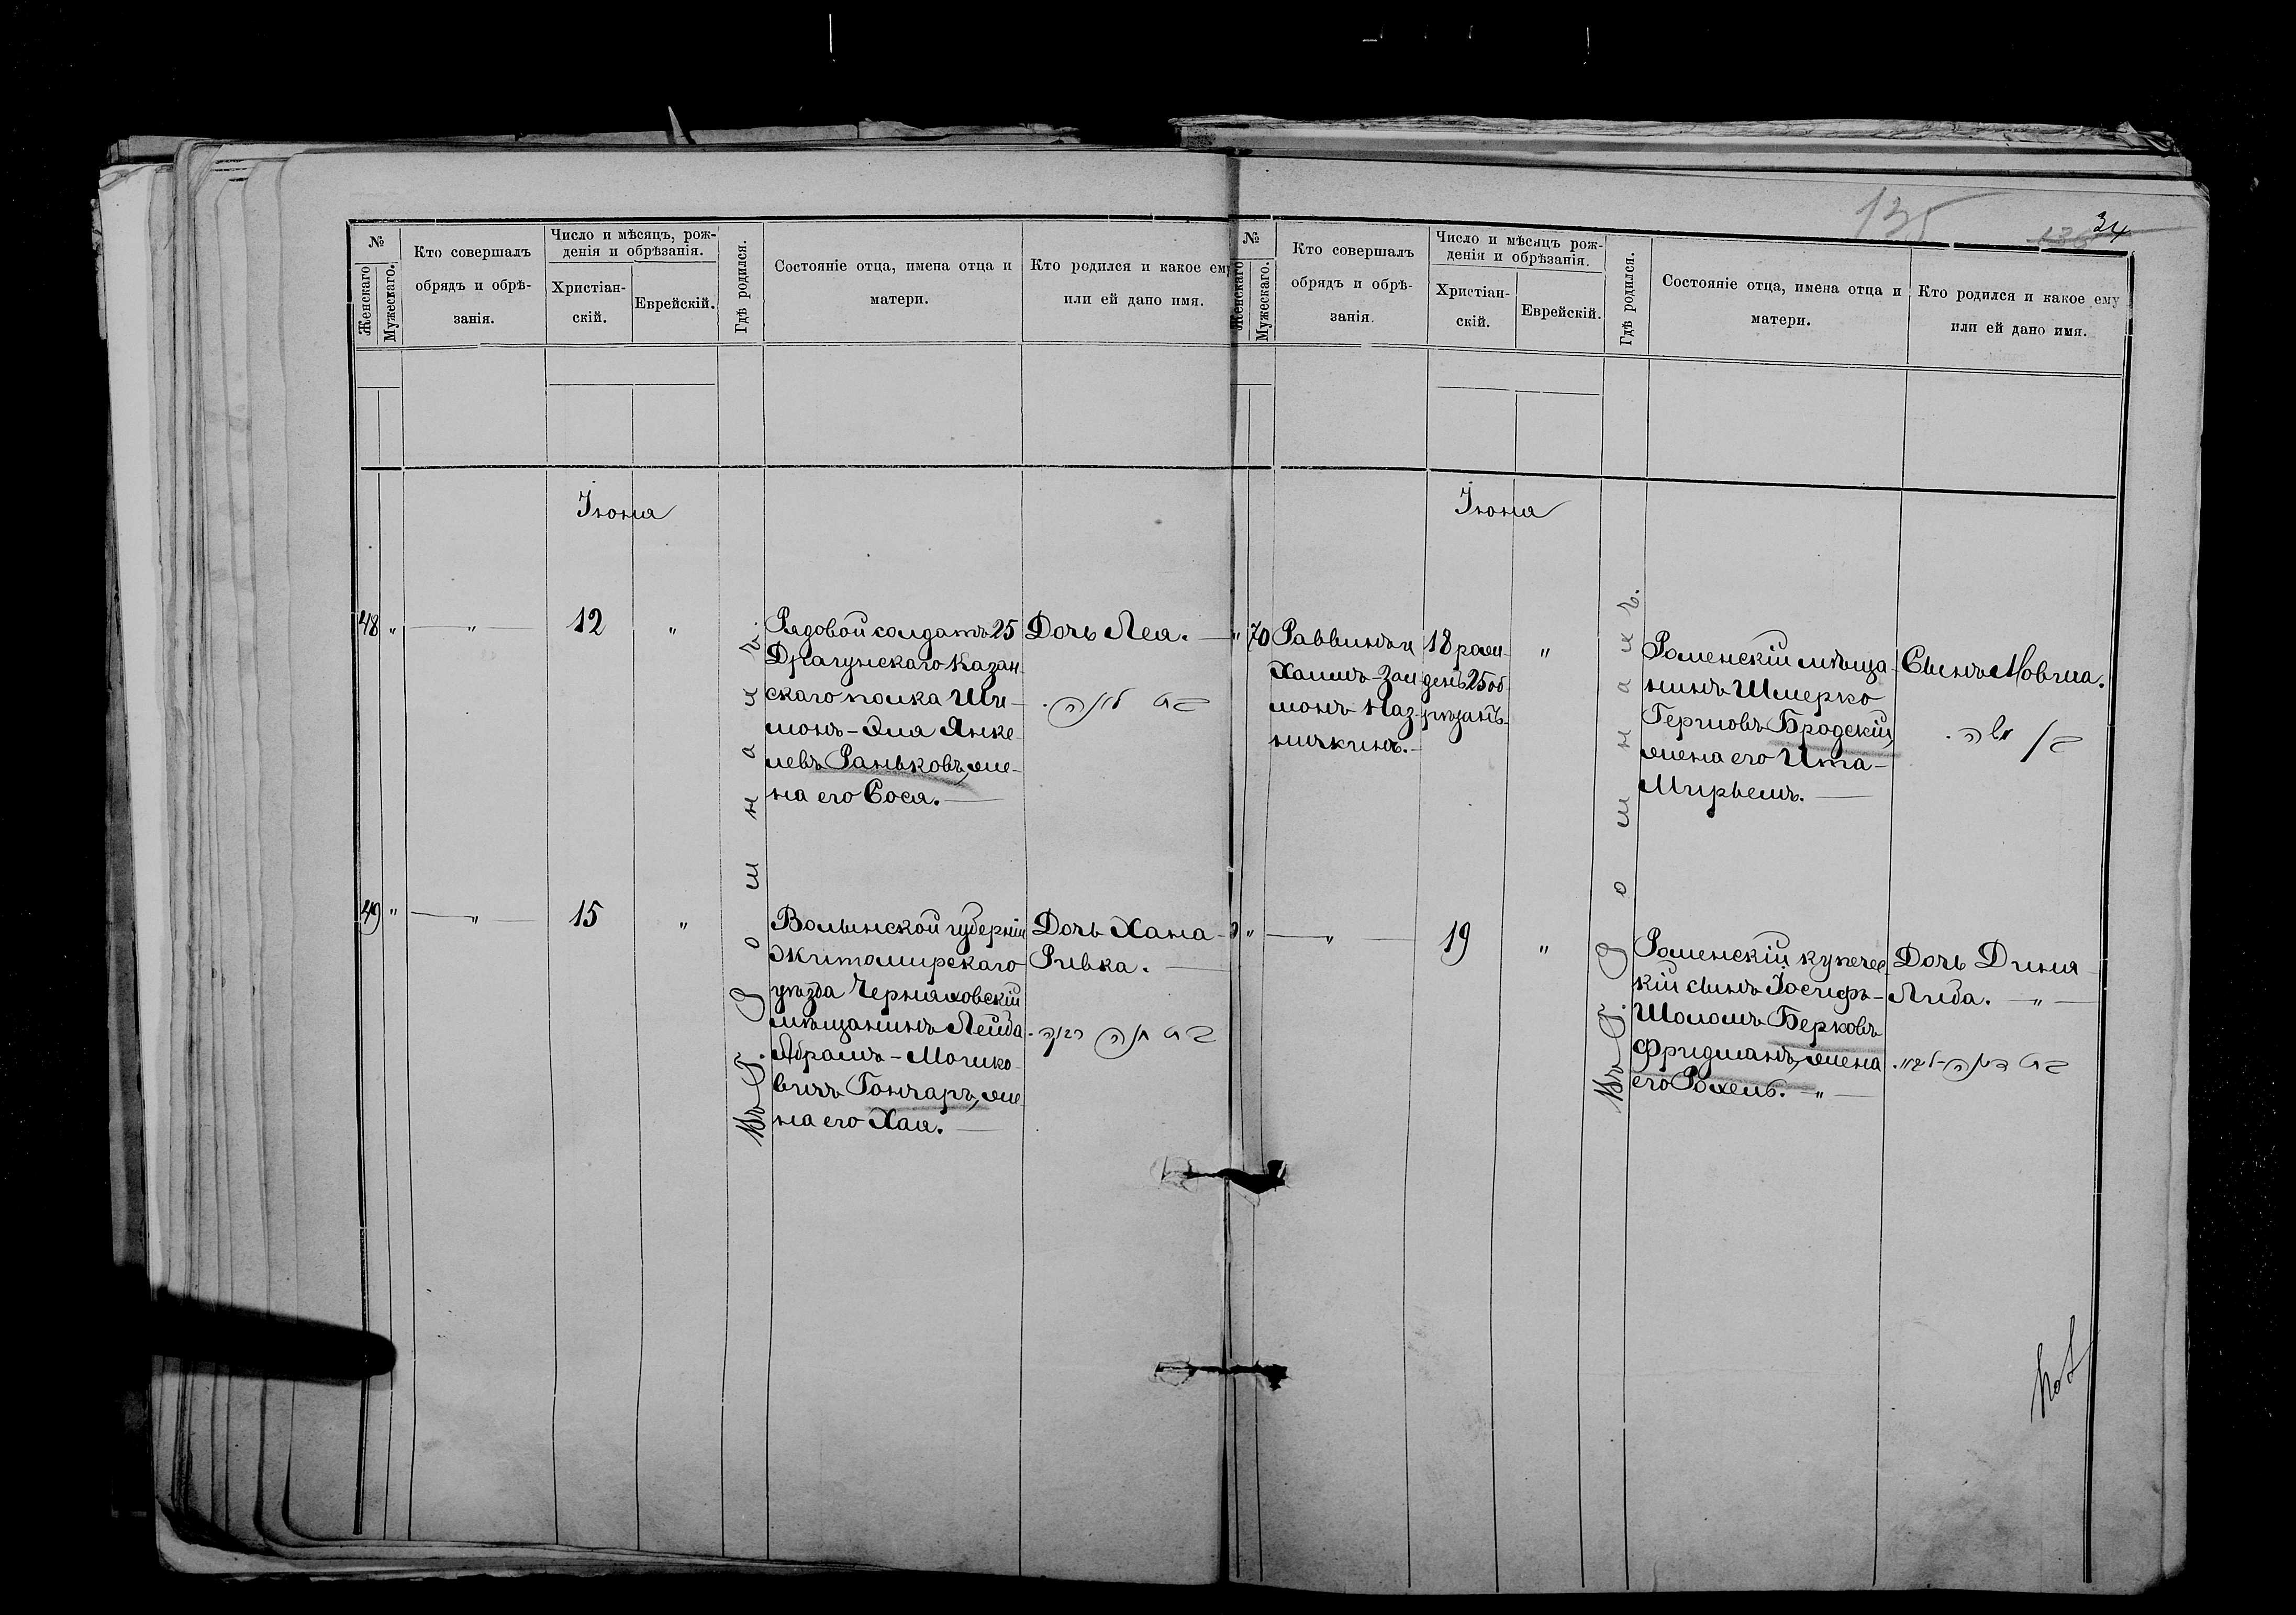 135
136
34
№
Женскаго
Мужескаго.
Кто совершалъ
обрядъ и обрѣ-
занія.
Число и мѣсяцъ, рож-
денія и обрѣзанія.
Христіан-
скій.
Еврейскій.
Гдѣ родился.
Состояніе отца, имена отца и
матери.
Кто родился и какое ему
или ей дано имя.
Іюня
48 " — " — 12 "
Рядовой солдатъ 25
Драгунскаго Казан-
скаго полка Ши-
монъ-Эля Янке-
левъ Раньковъ, же-
на его Сося. —
Дочь Леа. —
49 " — " — 15 "
Волынской губерніи
Житомирскаго
уѣзда Черняховскій
мѣщанинъ Лейба
Абрамъ-Мошко-
вичъ Гончаръ, же-
на его Хая. —
Дочь Хана-
Ривка. —
Въ г. Ромнахъ.
№
Женскаго
Мужескаго.
Кто совершалъ
обрядъ и обрѣ-
занія.
Число и мѣсяцъ рож-
денія и обрѣзанія.
Христіан-
скій.
Еврейскій.
Гдѣ родился.
Состояніе отца, имена отца и
матери.
Кто родился и какое ему
или ей дано имя.
Іюня
" 70
Раввинъ и
Хаимъ Зал-
монъ Наз-
ничкинъ. -
18 рож-
денъ 25 об-
рѣзанъ.
"
Роменскій мѣща-
нинъ Шмерко
Гершовъ Бродскій,
жена его Ита-
Мирьемъ. —
Сынъ Мовша.
" — " — 19 "
Роменскій купечес-
кій сынъ Іосифъ-
Шоломъ Берковъ
Фридманъ, жена
его Рохель. — " —
Дочь Диня-
Либа. — " —
Въ г. Ромнахъ.